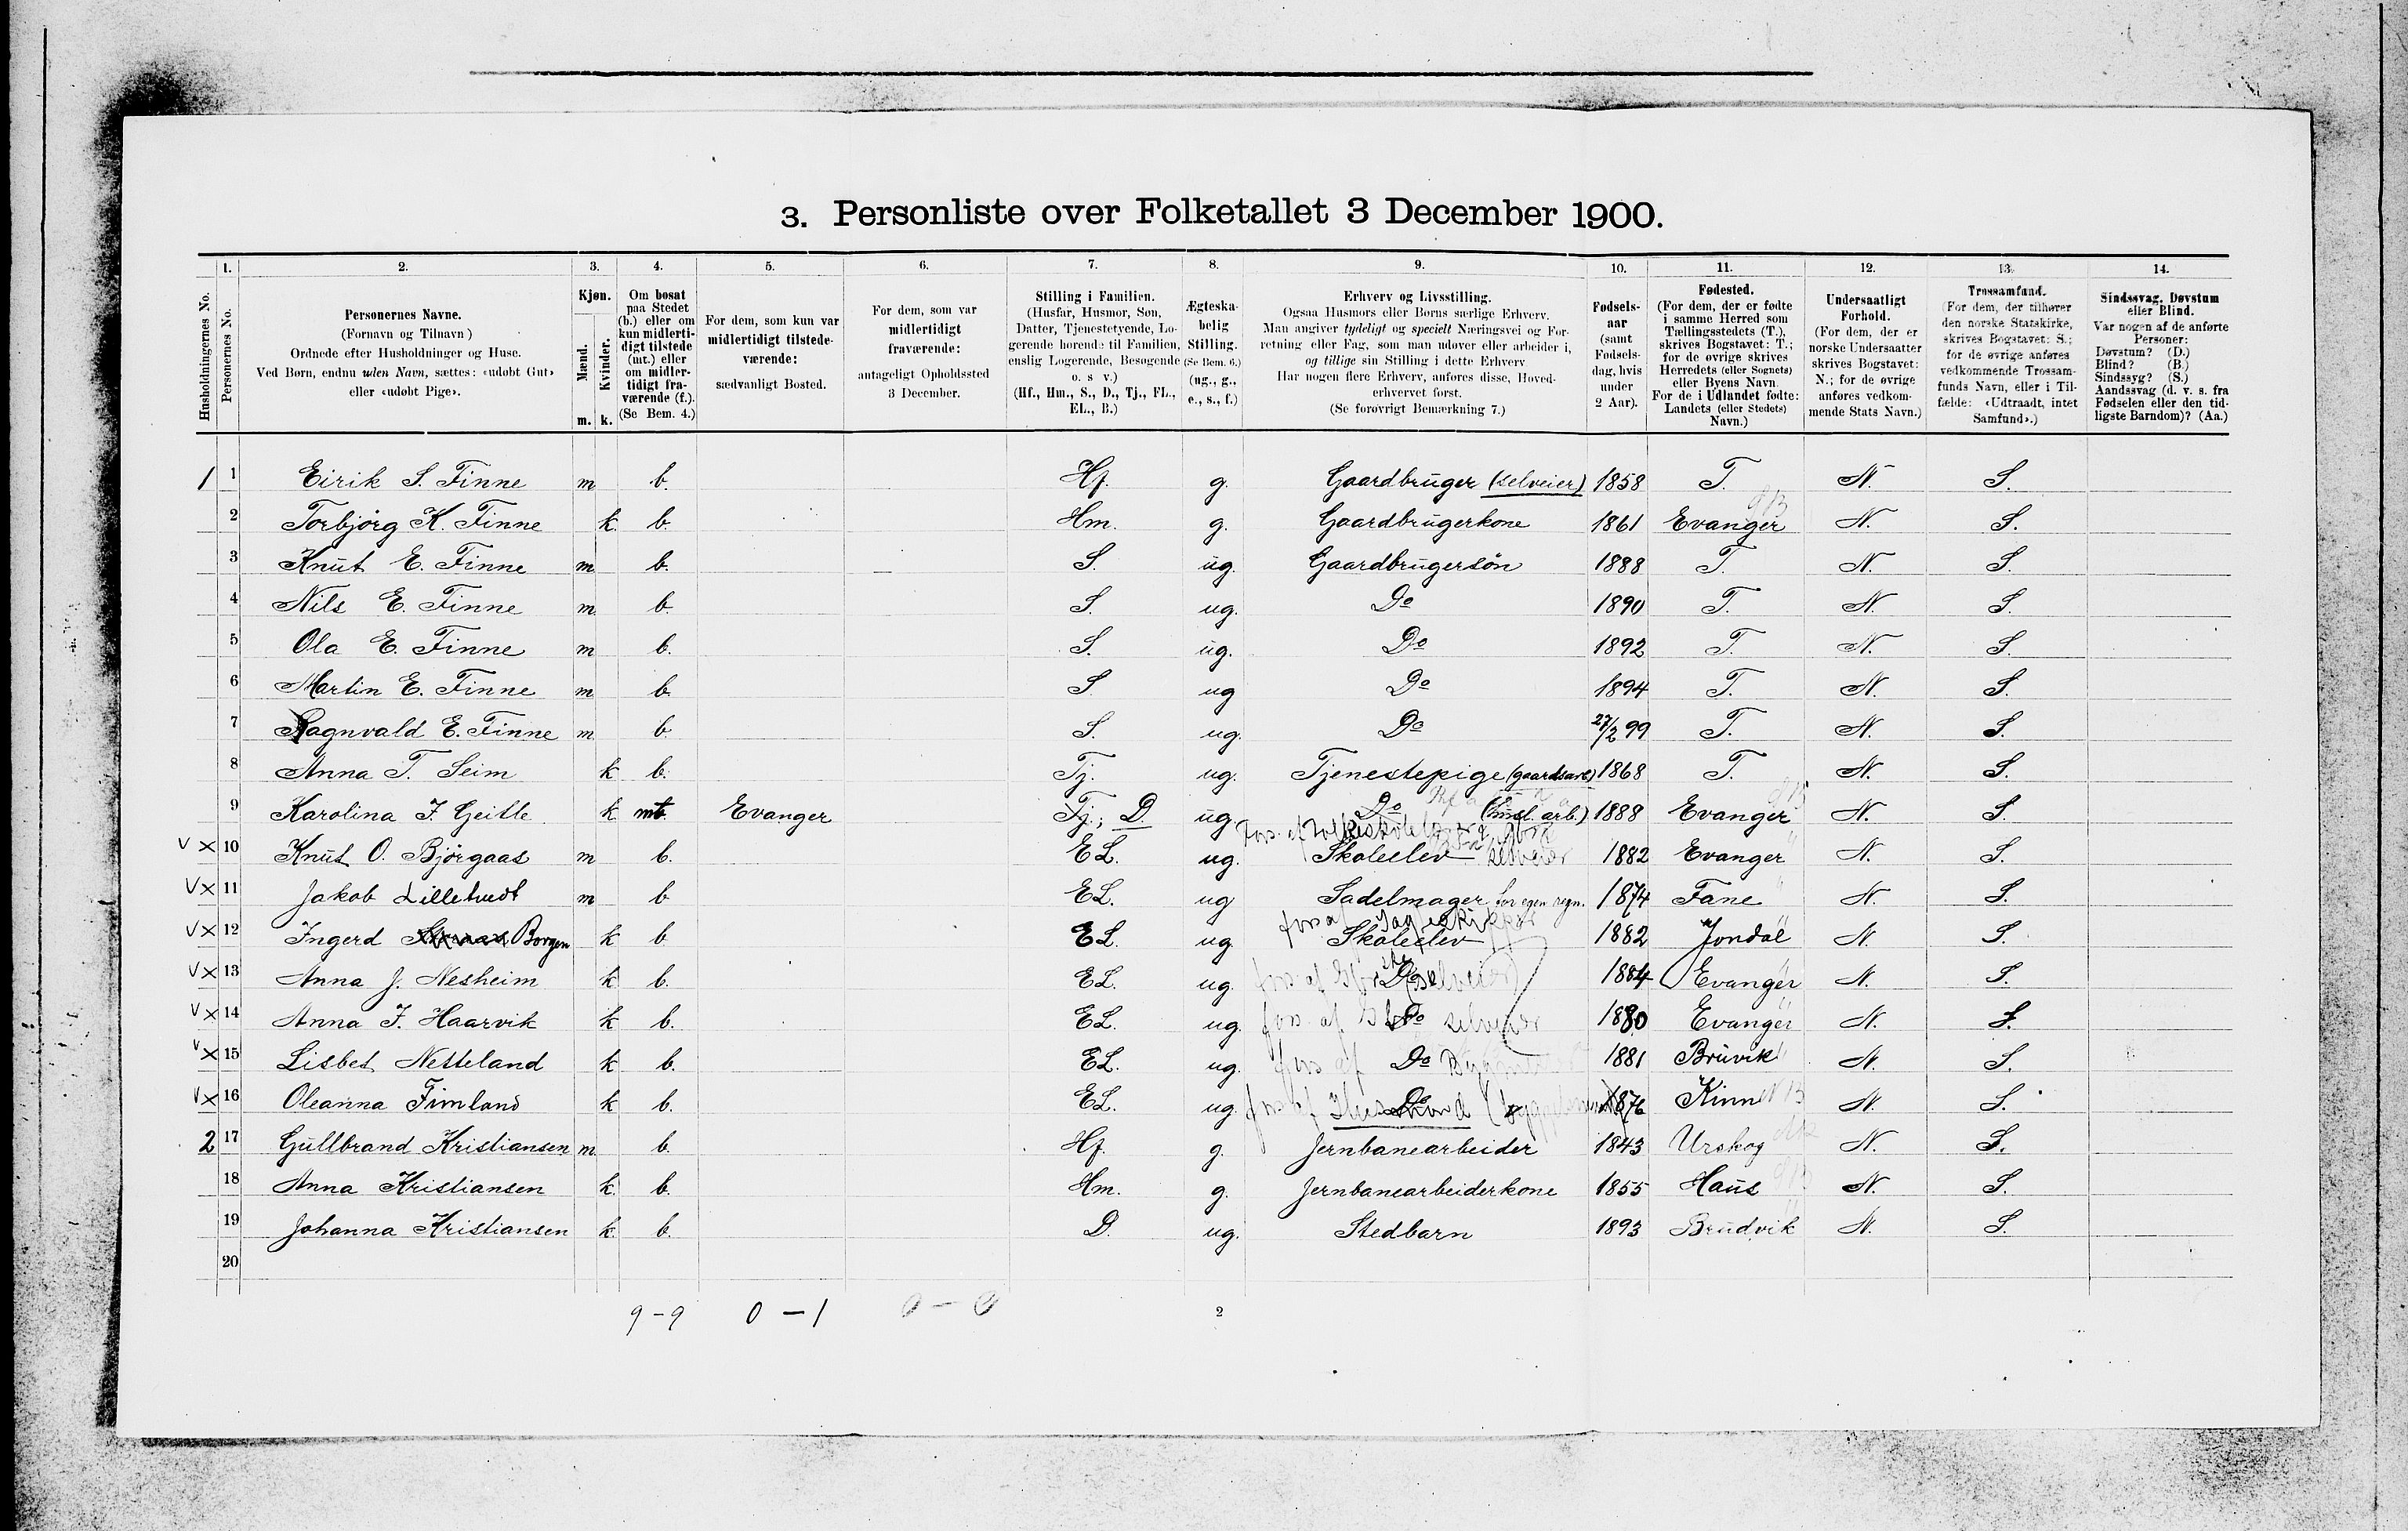 3. Personliste over Folketallet 3 December 1900.
1. 2. 3. 4. 5. 6. 7. 8. 9. 10. 11. 12. 13. 14.
Husholdningernes No.
Personernes No.
Personernes Navne.
(Fornavn og Tilnavn)
Ordnede efter Husholdninger og Huse.
Ved Børn, endnu uden Navn, sættes: «udøbt Gut»
eller «udøbt Pige».
Kjøn.
Mænd.
Kvinder.
m. k.
Om bosat
paa Stedet
(b.) eller om
kun midlerti-
digt tilstede
(mt.) eller
om midler-
tidigt fra-
værende (f.).
(Se Bem. 4.)
For dem, som kun var
midlertidigt tilstede-
værende:
sædvanligt Bosted.
For dem, som var
midlertidigt
fraværende:
antageligt Opholdssted
3 December.
Stilling i Familien.
(Husfar, Husmor, Søn,
Datter, Tjenestetyende, Lo-
gerende hørende til Familien,
enslig Logerende, Besøgende
o. s v.)
(Hf., Hm., S., D., Tj., FL.,
EL., B.)
Ægteska-
belig
Stilling.
(Se Bem. 6.)
(ug., g.,
e., s., f.)
Erhverv og Livsstilling.
Ogsaa Husmors eller Børns særlige Erhverv.
Man angiver tydeligt og specielt Næringsvei og For-
retning eller Fag, som man udøver eller arbeider i,
og tillige sin Stilling i dette Erhverv
Har nogen flere Erhverv, anføres disse, Hoved-
erhvervet først.
(Se forøvrigt Bemærkning 7.)
Fødsels-
aar
(samt
Fødsels-
dag, hvis
under
2 Aar).
Fødested.
(For dem, der er fødte
i samme Herred som
Tællingsstedets (T.),
skrives Bogstavet: T.;
for de øvrige skrives
Herredets (eller Sognets)
eller Byens Navn.
For de i Udlandet fødte:
Landets (eller Stedets)
Navn.)
Undersaatligt
Forhold.
(For dem, der er
norske Undersaatter
skrives Bogstavet:
N.; for de øvrige
anføres vedkom-
mende Stats Navn.)
Trossamfund.
(For dem, der tilhører
den norske Statskirke,
skrives Bogstavet: S.;
for de øvrige anføres
vedkommende Trossam-
funds Navn, eller i Til-
fælde: «Udtraadt, intet
Samfund».)
Sindssvag, Døvstum
eller Blind.
Var nogen af de anførte
Personer:
Døvstum? (D.)
Blind? (B.)
Sindssyg? (S.)
Aandssvag (d. v. s. fra
Fødselen eller den tid-
ligste Barndom)? (Aa.)
1 1 Eirik S. Finne m b. Hf. g. Gaardbruger (selveier) 1858 T. N. S.
2 Torbjörg K. Finne k. b. Hm. g. Gaardbrugerkone 1861 Evanger N. S.
3 Knut E. Finne m b. S. ug. Gaardbrugersön 1888 T. N. S.
4 Nils E. Finne m. b. S. ug. Do 1890 T. N. S.
5 Ola E. Finne m b. S. ug. Do 1892 T. N. S.
6 Martin E. Finne m b. S. ug Do 1894 T. N. S.
7 Ragnvald E. Finne m b. S. ug. Do 27/2 99 T. N. S.
8 Anna T. Seim k b. Tj. ug. Tjenestepige (gaardsarb.) 1868 T. N. S.
9 Karolina J. Geitle k mt. Evanger Tj., D. ug. Do (husl. arb.) 1888 Evanger N. S.
V x 10 Knut O. Björgaas m b. EL. ug. Skoleelev selveier 1882 Evanger N. S.
V x 11 Jakob Lilletvedt m b EL. ug Sadelmager for egen regn. 1874 Fane N. S.
fors af Jagteskipper
V x 12 Ingerd Borgen k b EL. ug. Skoleelev 1882 Jondal N. S.
V x 13 Anna J. Nesheim k b. EL. ug. fors af Gbr Do (selveier) 1884 Evanger N. S.
V x 14 Anna J. Haarvik k b. EL. ug. fors af Gbr Do selveier 1880 Evanger N. S.
V x 15 Lisbet Netteland k b. EL. ug. fors af Do 1881 Bruvik N. S.
V x 16 Oleanna Fimland k b. EL. ug. fors af Husmand Do 1876 Kinn N. S.
2 17 Gullbrand Kristiansen m b. Hf. g. Jernbanearbeider 1843 Urskog N. S.
18 Anna Kristiansen k. b. Hm. g. Jernbanearbeiderkone 1855 Haus N. S.
19 Johanna Kristiansen k. b. D. ug. Stedbarn 1893 Brudvik N. S.
20
9 - 9 0 - 1 0 - 0 2